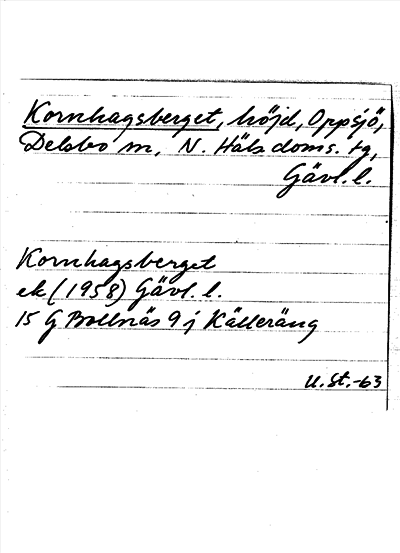 Kornhagsberget, höjd, Oppsjö,
Delsbo sn, N. Häls doms. tg,
Gävl. l.
Kornhagsberget
ek (1958) Gävl. l.
15 G Bollnäs 9 j Källeräng
U. St. -63